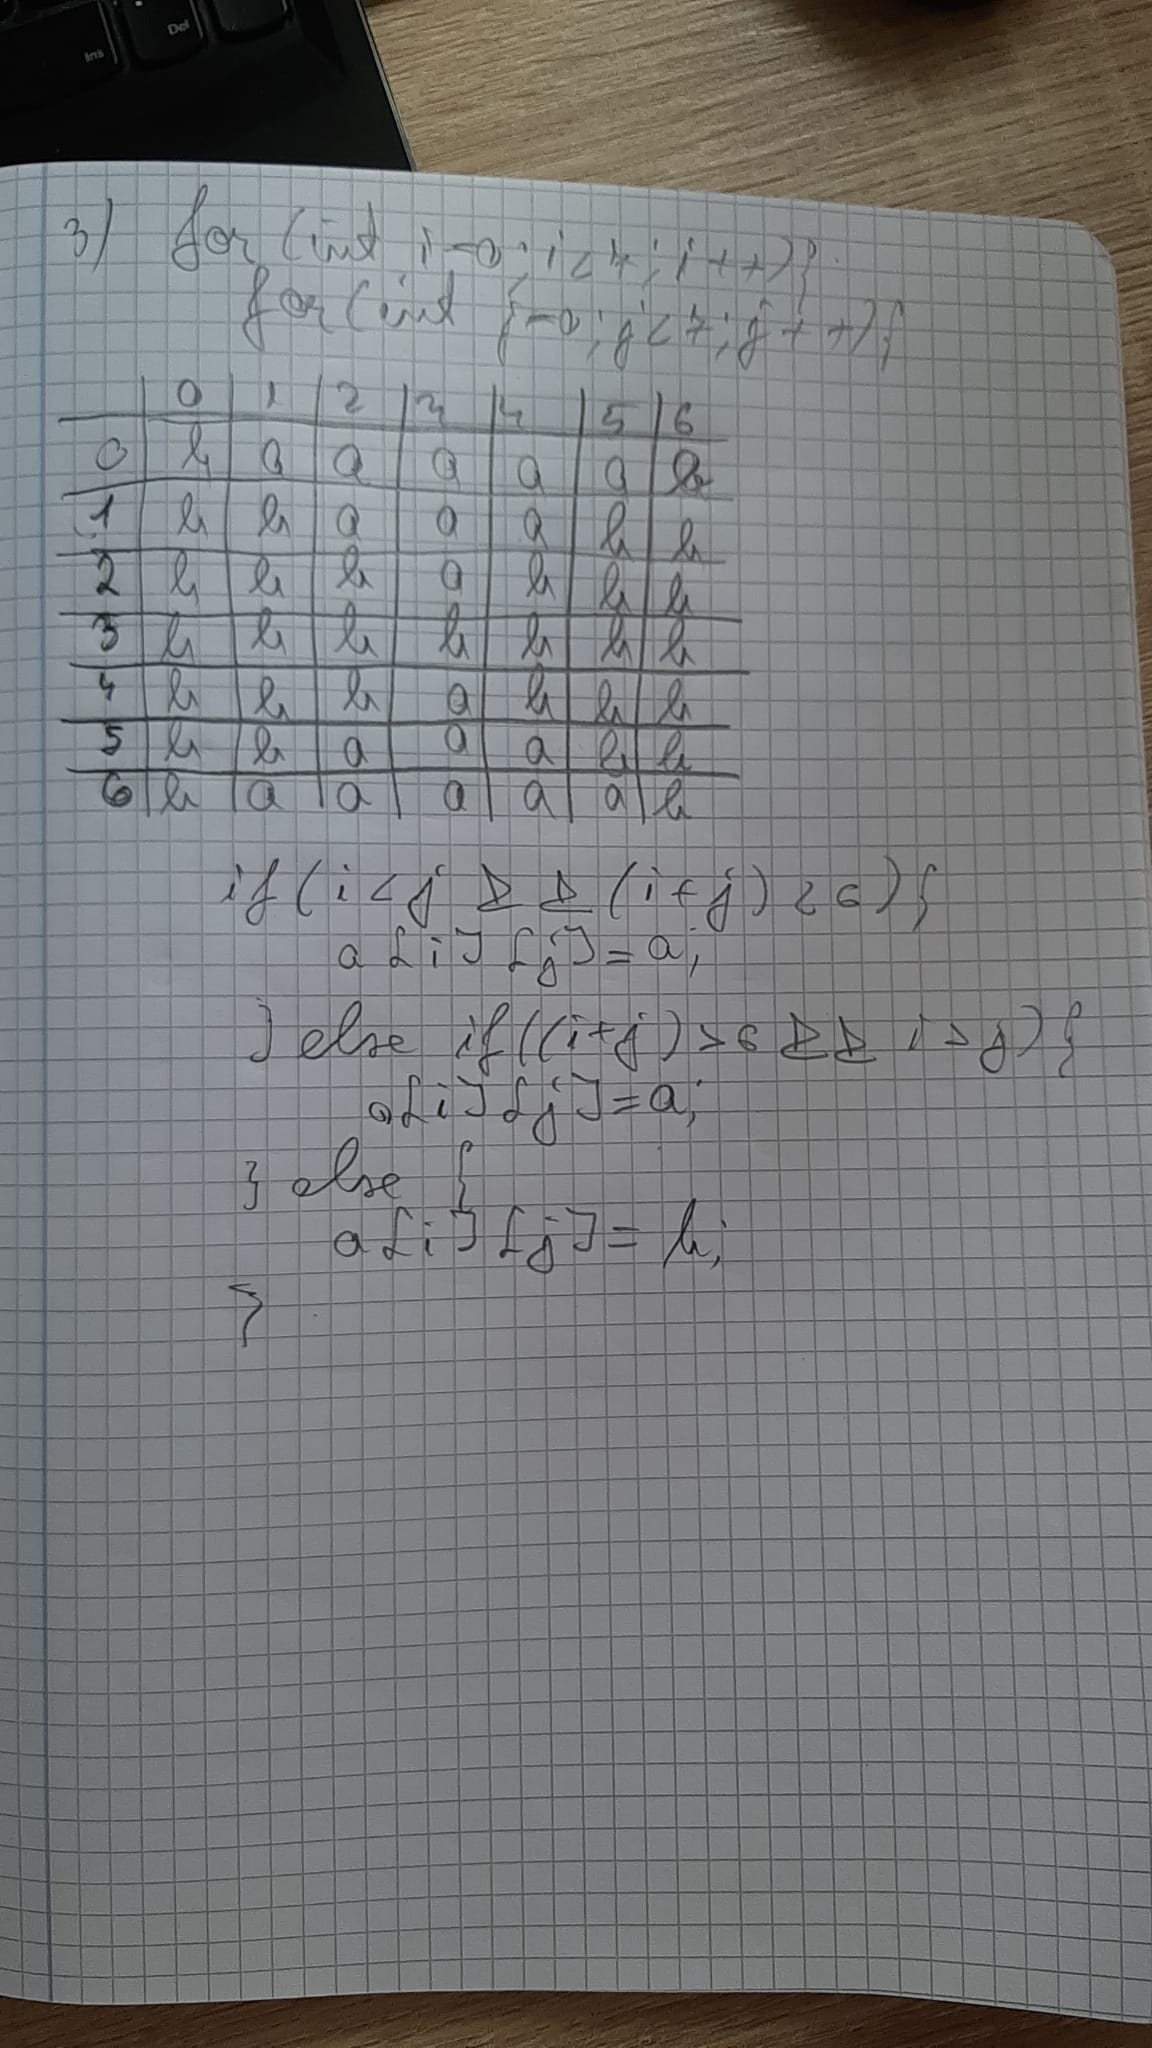 Ins
Del
3) for (int i=0; i<7; i++){
for (int j=0; j<7; j++){
0 1 2 3 4 5 6
0 b a a a a a b
1 b b a a a b b
2 b b b a b b b
3 b b b b b b b
4 b b b a b b b
5 b b a a a b b
6 b a a a a a b
if (i<j && (i+j)<6){
a[i][j]=a;
} else if ((i+j)>6 && i>j){
a[i][j]=a;
} else {
a[i][j]=b;
}